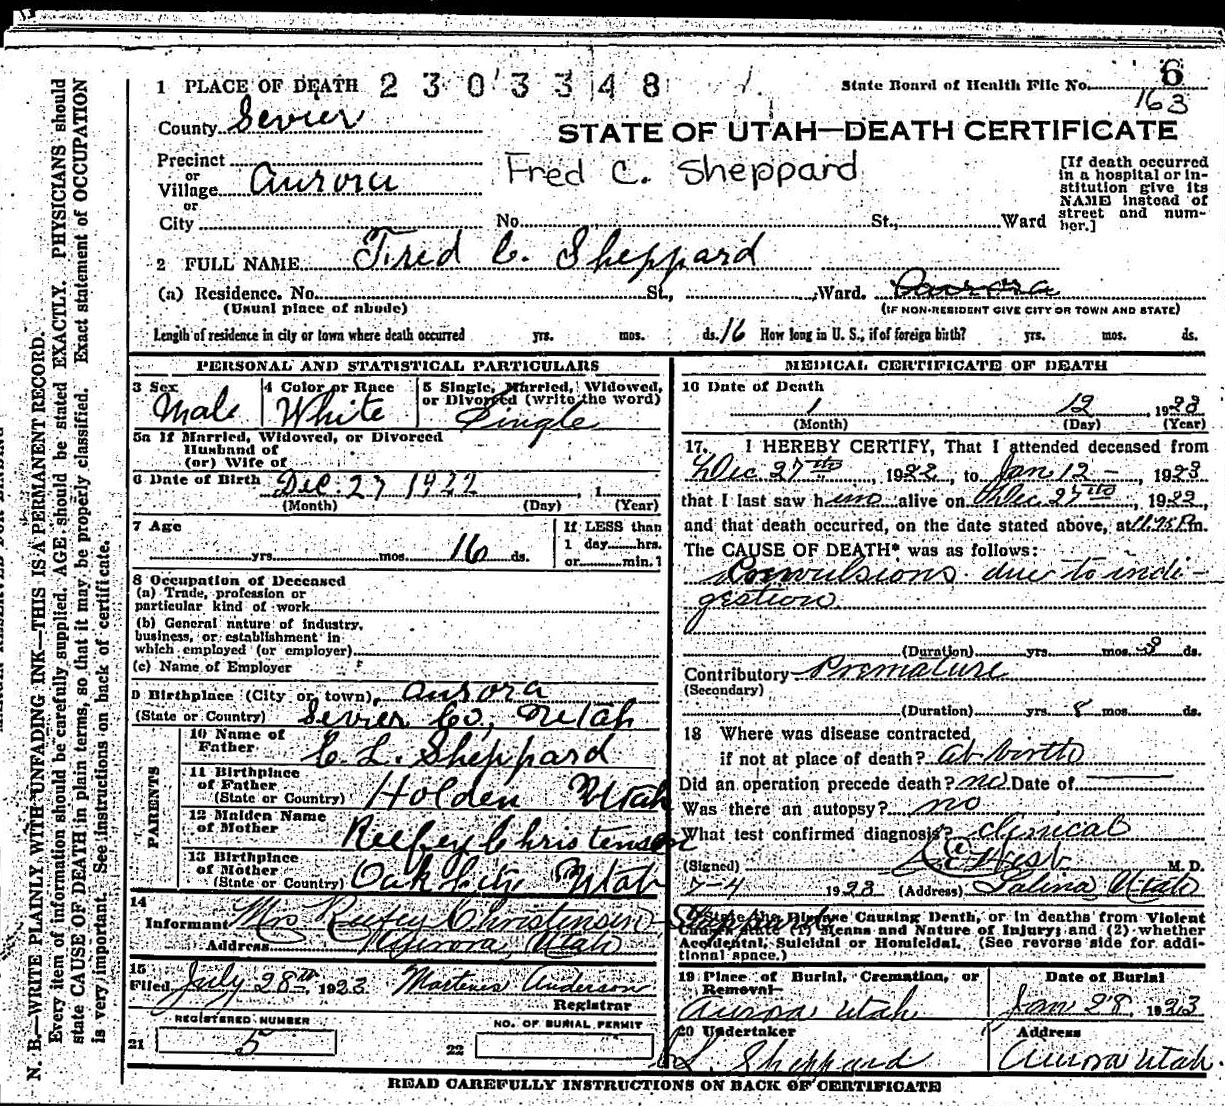 6
1 PLACE OF DEATH 2303348 State Board of Health File No.
163
County Sevier
STATE OF UTAH—DEATH CERTIFICATE
Precinct
or
Village Aurora
Fred C. Sheppard
[If death occurred in a hospital or institution give its NAME instead of street and number.]
or
City No. St., Ward
2 FULL NAME Fred C. Sheppard
(a) Residence. No. St., Ward. Aurora
(Usual place of abode) (IF NON-RESIDENT GIVE CITY OR TOWN AND STATE)
Length of residence in city or town where death occurred yrs. mos. ds. 16 How long in U. S., if of foreign birth? yrs. mos. ds.
PERSONAL AND STATISTICAL PARTICULARS
3 Sex Male
4 Color or Race White
5 Single, Married, Widowed, or Divorced (write the word) Single
5a If Married, Widowed, or Divorced
Husband of
(or) Wife of
6 Date of Birth Dec. 27 1922, 1
(Month) (Day) (Year)
7 Age
yrs. mos. 16 ds.
If LESS than
1 day hrs.
or min.
8 Occupation of Deceased
(a) Trade, profession or
particular kind of work
(b) General nature of industry,
business, or establishment in
which employed (or employer)
(c) Name of Employer
9 Birthplace (City or town), Aurora
(State or Country) Sevier Co, Utah
PARENTS
10 Name of
Father C. L. Sheppard
11 Birthplace
of Father
(State or Country) Holden Utah
12 Maiden Name
of Mother Christenson
13 Birthplace
of Mother
(State or Country) Oak City Utah
14
Informant Mrs Christensen Sheppard
Address Aurora, Utah
15
Filed July 28th 1923 Martines Anderson
Registrar
REGISTERED NUMBER
21 5
NO. OF BURIAL PERMIT
22
MEDICAL CERTIFICATE OF DEATH
16 Date of Death
1 12, 1923
(Month) (Day) (Year)
17. I HEREBY CERTIFY, That I attended deceased from
Dec 27th, 1922, to Jan 12 -, 1923
that I last saw him alive on Dec. 27th, 1922,
and that death occurred, on the date stated above, at m.
The CAUSE OF DEATH* was as follows:
Convulsions due to indi-
gestion
(Duration) yrs. mos. 3 ds.
Contributory Premature
(Secondary)
(Duration) yrs. 8 mos. ds.
18 Where was disease contracted
if not at place of death? at birth
Did an operation precede death? no Date of
Was there an autopsy? no
What test confirmed diagnosis? clinical
(Signed) West M. D.
7-4 1923 (Address) Salina Utah
*State the Disease Causing Death, or in deaths from Violent
Causes state (1) Means and Nature of Injury; and (2) whether
Accidental, Suicidal or Homicidal. (See reverse side for addi-
tional space.)
19 Place of Burial, Cremation, or
Removal
Aurora Utah
Date of Burial
Jan 28 1923
20 Undertaker
L. Sheppard
Address
Aurora Utah
READ CAREFULLY INSTRUCTIONS ON BACK OF CERTIFICATE
N. B.—WRITE PLAINLY, WITH UNFADING INK—THIS IS A PERMANENT RECORD.
Every item of information should be carefully supplied. AGE should be stated EXACTLY. PHYSICIANS should
state CAUSE OF DEATH in plain terms, so that it may be properly classified. Exact statement of OCCUPATION
is very important. See instructions on back of certificate.